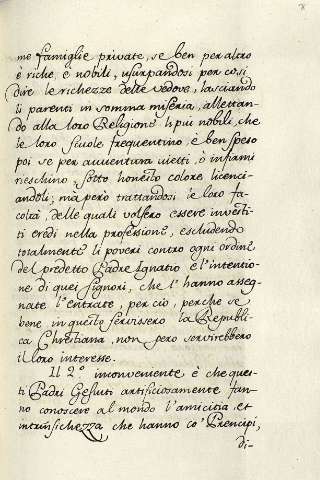 me famiglie private, se ben per altro
è riche, e nobili, usurpandosi per cosi
dire le richezze delle vedove, lasciando
li parenti in somma miseria, allettan-
do alla loro Religione li più nobili, che
le loro scuole frequentino, e ben speso
poi se per avventura inetti, ò infirmi
rieschino, sotto honesto colore licenci-
andoli, mà però trattandosi le loro fa-
coltà, delle quali volsero essere investi-
ti eredi nella professione, escludendo
totalmente li poveri contro ogni ordine
del predetto Padre Ignatio è l'intentio-
ne di quei signori, che l'hanno asseg-
nate l'entrate, per ciò, perche se
bene in questo servissero la Republi-
ca Christiana, non pero servirebbero
il loro interesse.
Il 2.º inconveniente è che ques-
ti Padri Gesuiti artificiosamente fan-
no conoscere al mondo l'amicitia, et
intrinsichezza che hanno co' Prencipi,
di-